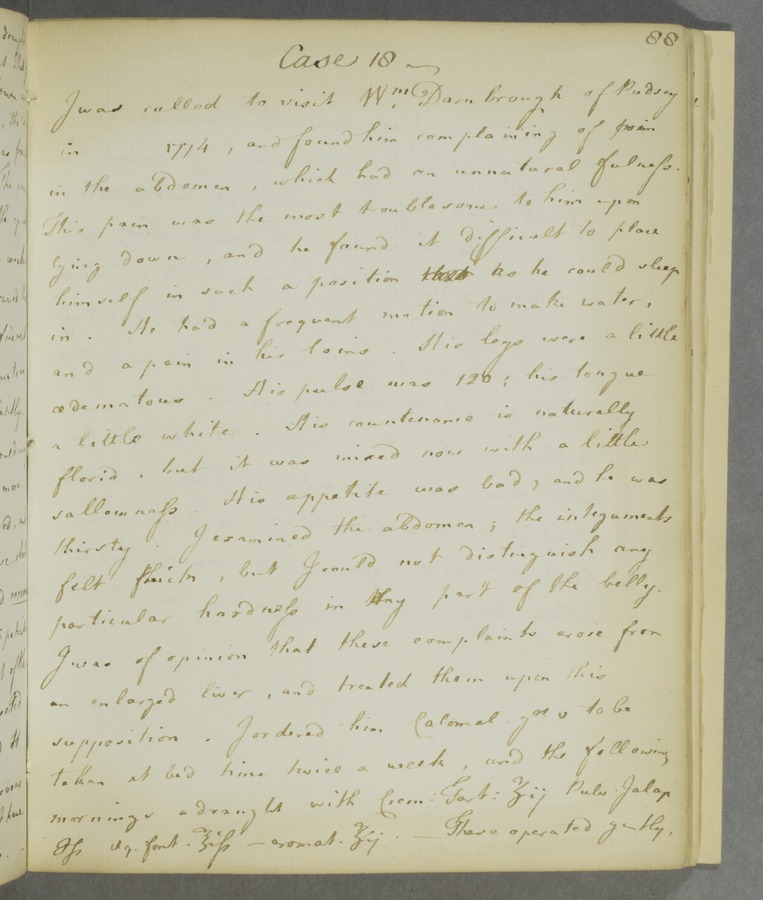 88
Case 18
I was called to visit Wm. Darnbrough of Pudsey
in 1774, and found him complaining of pain
in the abdomen, which had an unnatural fulness.
This pain was the most troublesome to him upon
lying down, and he found it difficult to place
himself in such a position as he could sleep
in. He had a frequent motion to make water,
and a pain in his loins. His legs were a little
œdematous. His pulse was 120; his tongue
a little white. His countenance is naturally
florid, but it was mixed now with a little
sallowness. His appetite was bad, and he was
thirsty. I examined the abdomen; the integuments
felt thick, but I could not distinguish any
particular hardness in any part of the belly.
I was of opinion that these complaints arose from
an enlarged liver, and treated them upon this
supposition. I ordered him Calomel. gr v to be
taken at bed time twice a week, and the following
mornings a draught with Crem: Tart: ʒij Pulv: Jalap
℈ß Aq. font. ℥iß — aromat. ʒij. — These operated gently,